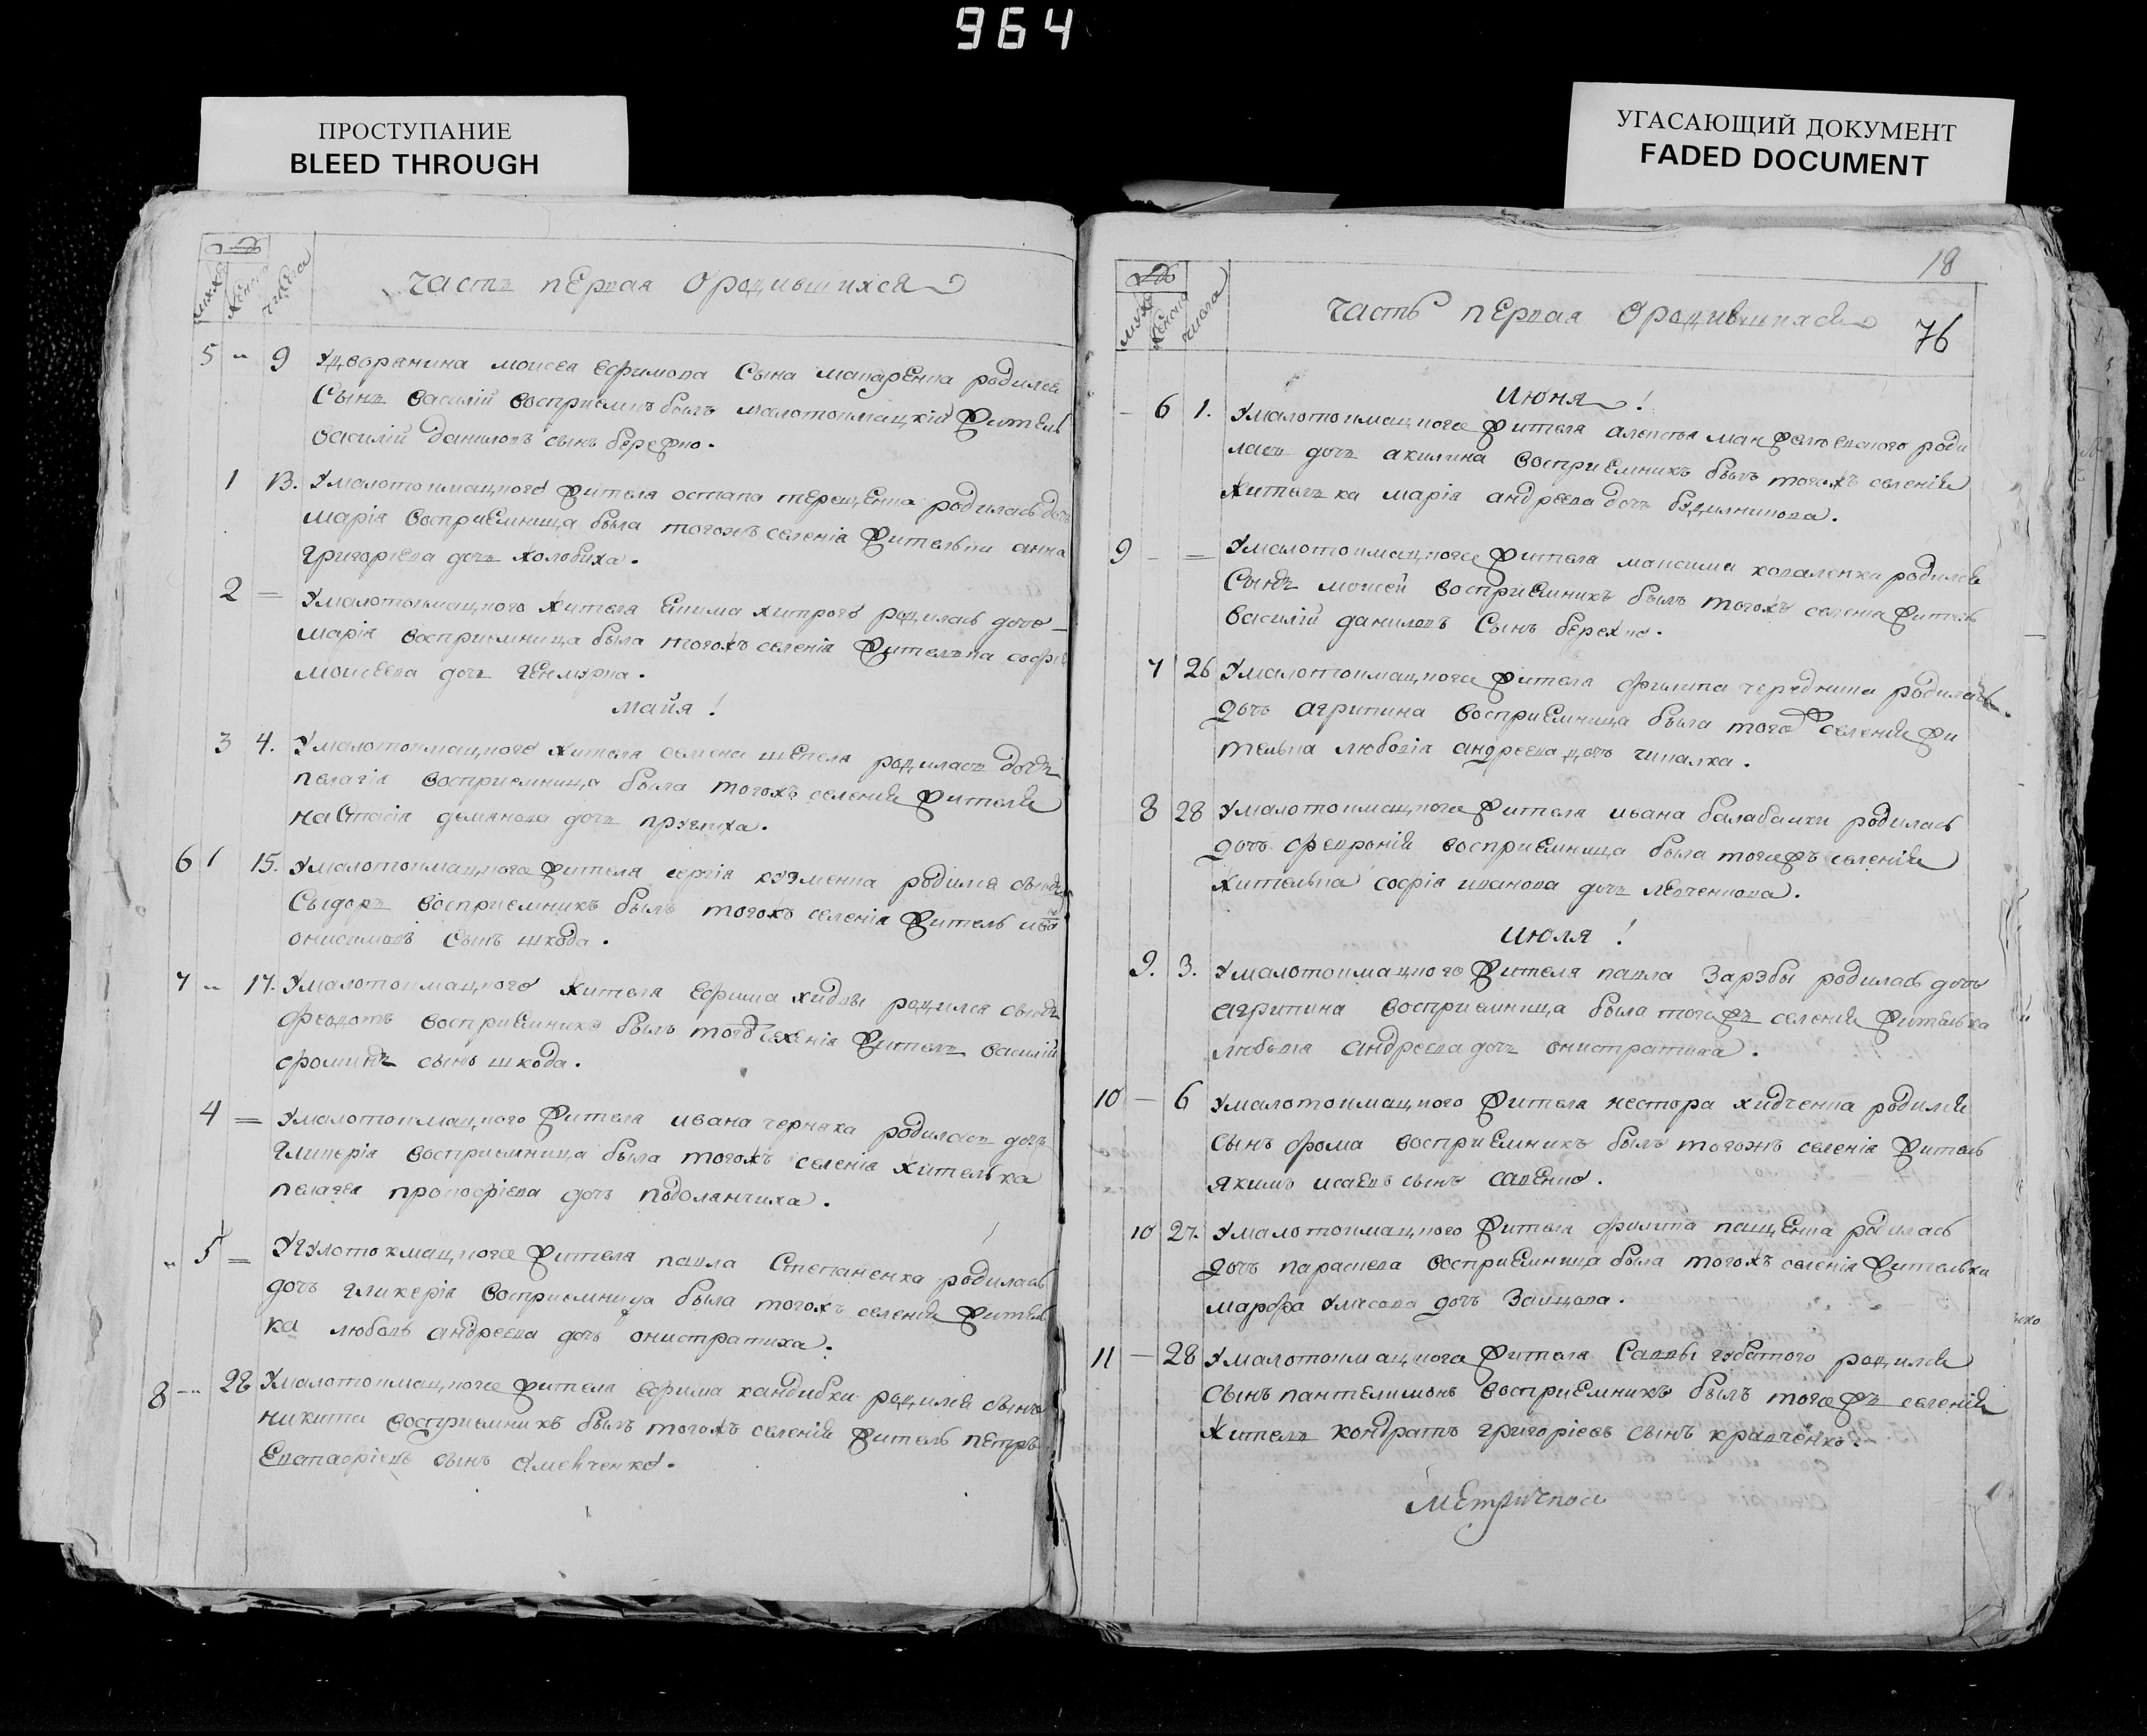 964
ПРОСТУПАНИЕ
BLEED THROUGH
УГАСАЮЩИЙ ДОКУМЕНТ
FADED DOCUMENT
часть первая Ородившихся
мужс женс числа
5 " 9 Удворянина моисея ефимова сына макаренка родился
Сынъ василій восприемнъ былъ малотокмацкій житель
василій даниловъ сынъ бережно.
1 13. Умалотокмацкого жителя остапа терещенка родилась дочь
марія восприемница была тогожъ селенія жителька анна
григоріева дочь холобиха.
2 — Умалотокмацкого жителя екима хитрого родилась дочь
марія восприемница была тогожъ селенія жителька софія
моисеева дочь
майя !
3 4. Умалотокмацкого жителя семена шепеля родилась дочь
пелагія восприемница была тогожъ селенія жителя
настасія демянова дочь
6 1 15. Умалотокмацкого жителя сергія кузменка родился сынъ
Сыдоръ восприемникъ былъ тогожъ селенія житель ива
онисимовъ сынъ шкода.
7 " 17. Умалотокмацкого жителя ефима хидзы родился сынъ
феодотъ восприемникъ былъ тогож селенія житель василій
фоминъ сынъ шкода.
4 = Умалотокмацкого жителя ивана черняка родилась дочь
Гликерія восприемница была тогожъ селенія жителька
пелагея прокофіева дочь подоланчиха.
" 5 = Умалотокмацкого жителя павла Степаненка родилась
дочь гликерія восприемница была тогожъ селенія житель
ка любовь андреева дочь онистратиха.
8 — 28 Умалотокмацкого жителя ефима кандибки родился сынъ
никита восприемникъ былъ тогожъ селенія житель петръ
Евстафіевъ сынъ
18
76
мужс женс числа
часть первая Ородившихся
Июня !
— 6 1. Умалотокмацкого жителя алексея роди
лась дочь акилина восприемникъ былъ тогожъ селенія
жителька марія андреева дочь будилникова.
9 — = Умалотокмацкого жителя максима коваленка родился
Сынъ моисей восприемникъ былъ тогожъ селенія житель
василій даниловъ Сынъ бережно.
7 26 Умалотокмацкого жителя филипа чередника родилась
дочь агрипина восприемница была тогож селенія жи
телька любовія андреева дочь чикалка.
8 28 Умалотокмацкого жителя ивана балабашки родилась
дочь февронія восприемница была тогожъ селенія
жителька софія иванова дочь левченкова.
Июля !
9. 3. Умалотокмацкого жителя павла Зарэбы родилась дочь
агрипина восприемница была тогожъ селенія жителька
любовія андреева дочь онистратиха.
10 — 6 Умалотокмацкого жителя нестора хидченка родился
сынъ фома восприемникъ былъ тогожъ селенія житель
якимъ исаевъ сынъ савенко.
10 27. Умалотокмацкого жителя филипа пащенка родилась
дочь параскева восприемница была тогожъ селенія жителька
марфа дочь Зайцова.
11 — 28 Умалотокмацкого жителя Саввы губатого родился
Сынъ пантелимонъ восприемникъ былъ тогожъ селенія
житель кондратъ григоріевъ сынъ кравченко.
метрическа